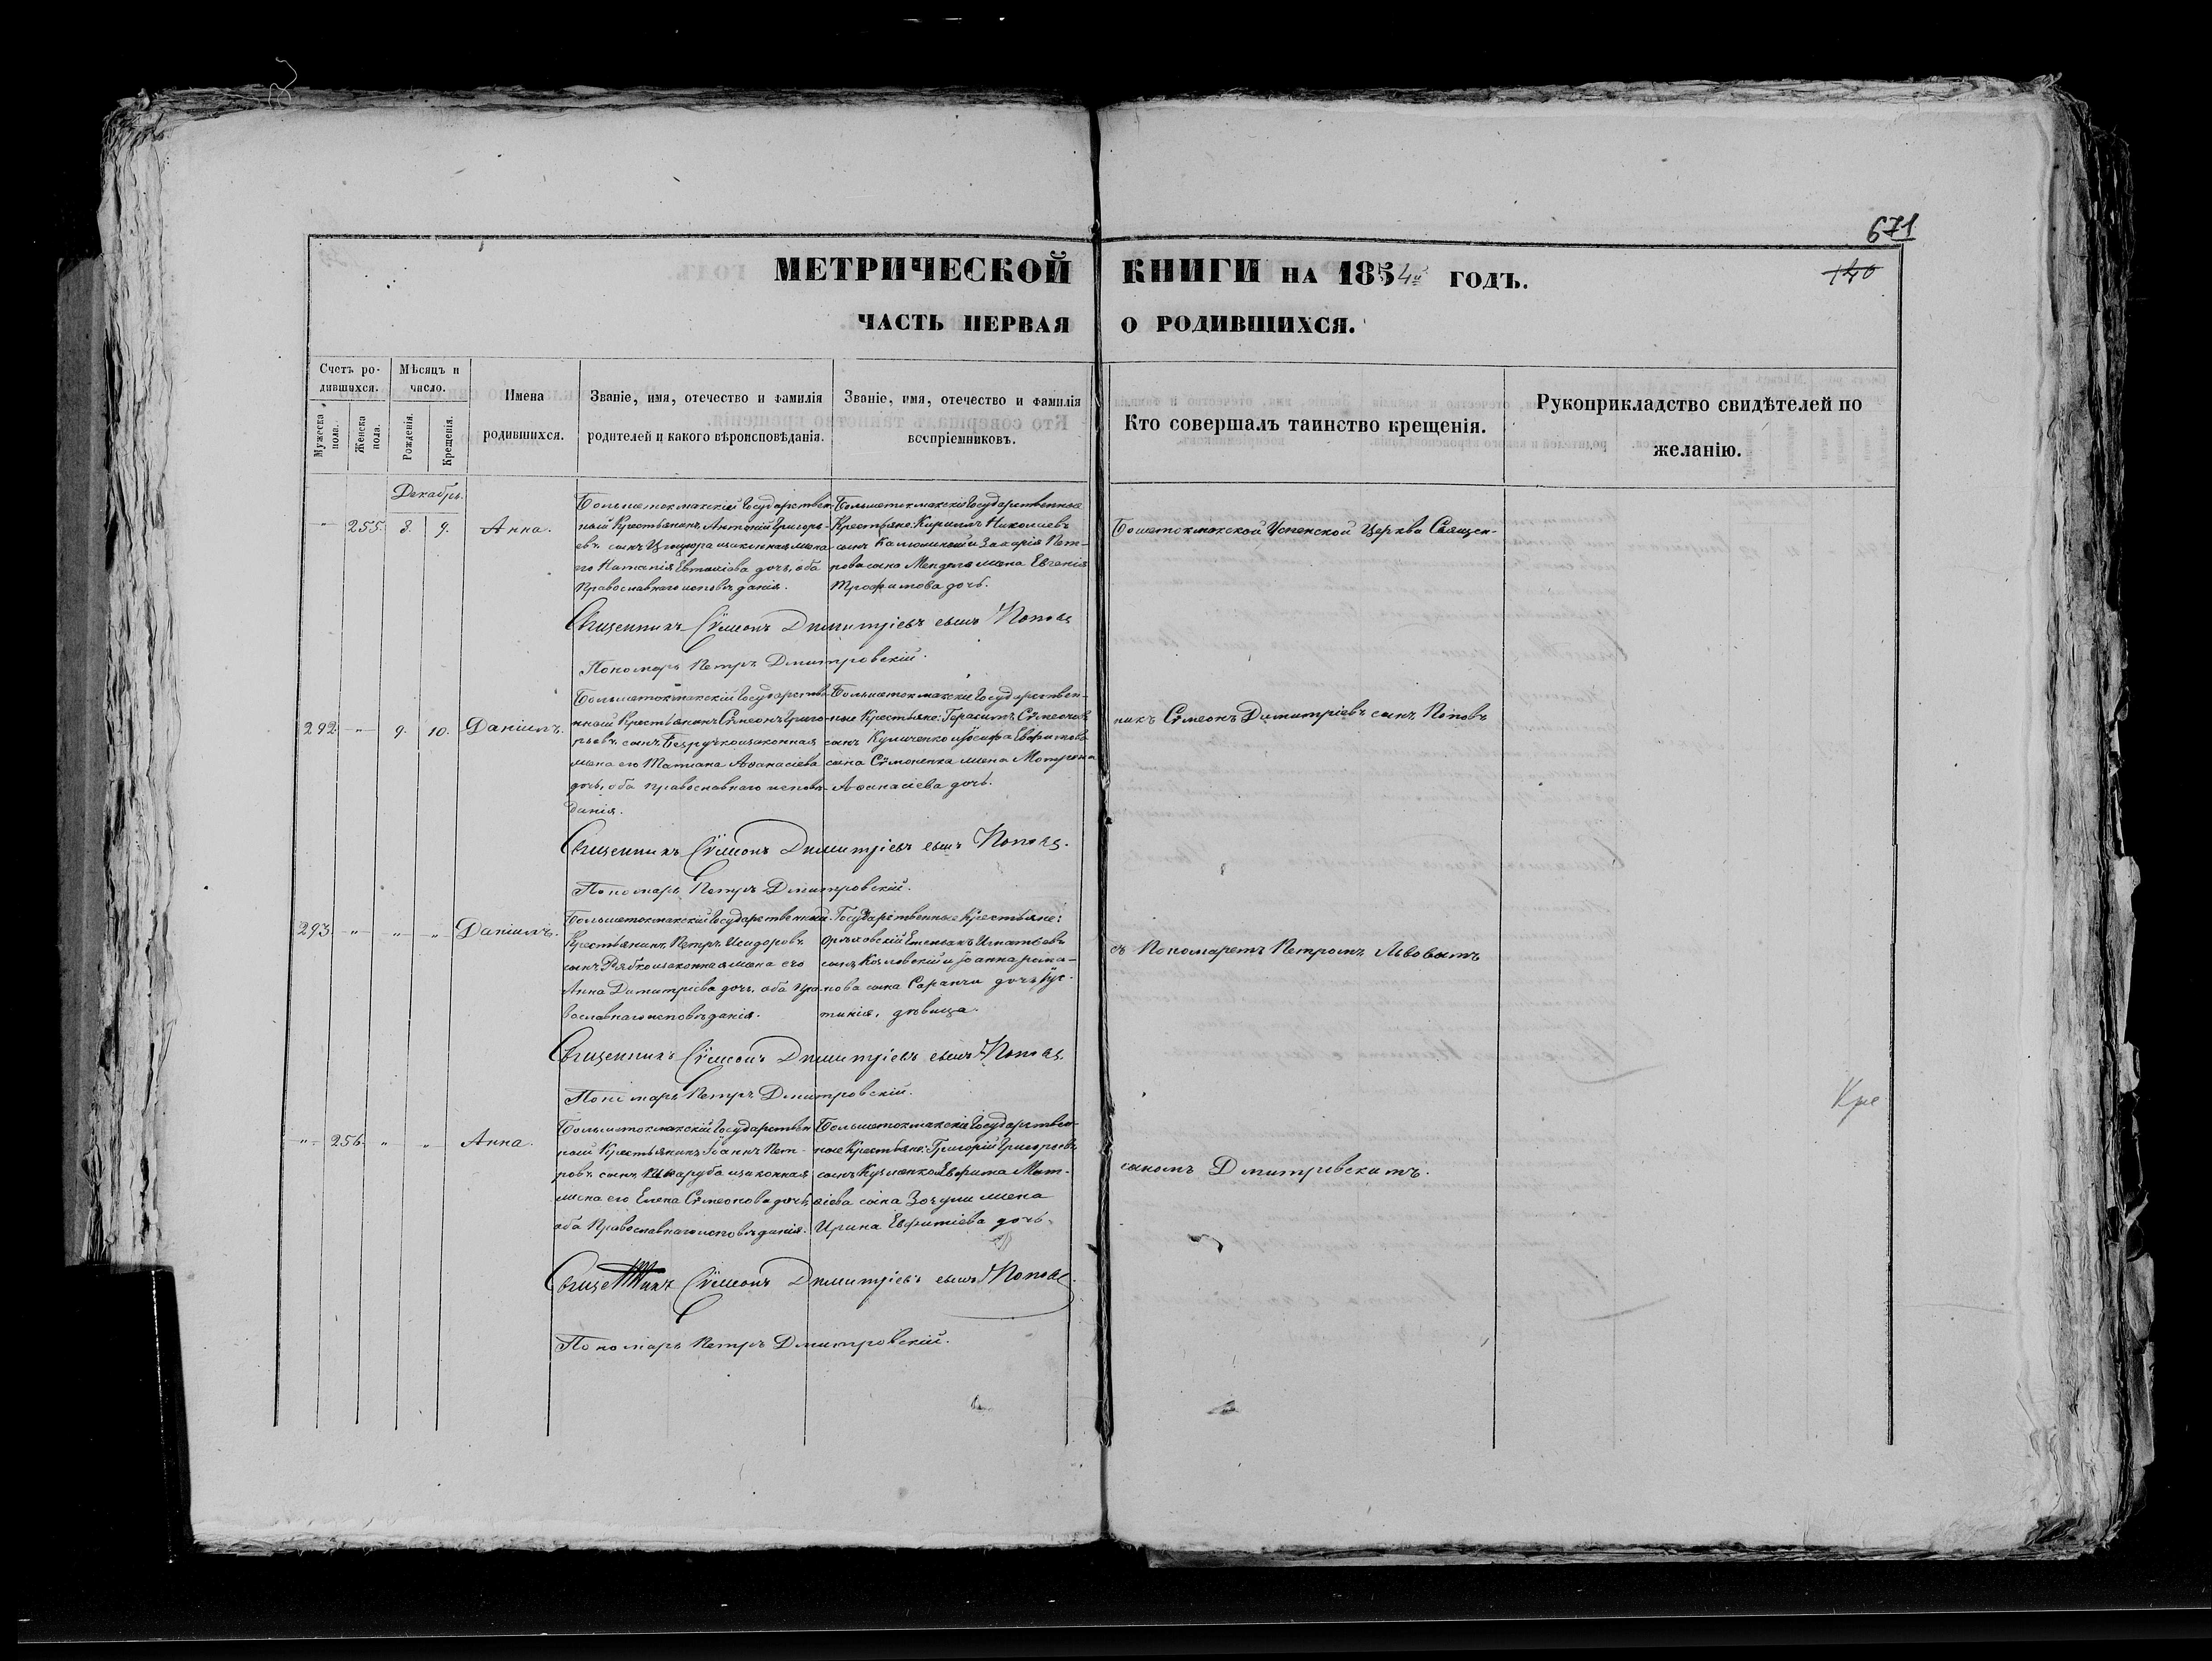 671
140
МЕТРИЧЕСКОЙ КНИГИ НА 1854й ГОДЪ.
ЧАСТЬ ПЕРВАЯ О РОДИВШИХСЯ.
Счетъ родившихся.
Мужеска пола.
Женска пола.
Мѣсяцъ и число.
Рожденія.
Крещенія.
Имена родившихся.
Званіе, имя, отечество и фамилія родителей и какого вѣроисповѣданія.
Званіе, имя, отечество и фамилія воспріемниковъ.
Кто совершалъ таинство крещенія.
Рукоприкладство свидѣтелей по желанію.
Декабрь.
" 255. 8. 9. Анна.
Большетокмакскій Государствен-
ный Крестьянинъ Антоній Григорь-
евъ сынъ и законная жена
его Наталія Евтихіева дочь, оба
Православнаго исповѣданія.
Большетокмакскіе Государственные
Крестьяне: Кириллъ Николаевъ
сынъ и Захарія Пет-
рова сына жена Евгенія
Трофимова дочь.
Бошетокмакской Успенской Церкви Священ-
Священникъ Сѵмеонъ Димитріевъ сынъ Поповъ
Пономарь Петръ Дмитровскій.
292. " 9. 10. Даніилъ.
Большетокмакскій Государствен-
ный Крестьянинъ Сѵмеонъ Григо-
рьевъ сынъ Безручко и законная
жена его Татіана Аѳанасіева
дочь, оба православнаго исповѣ-
данія.
Большетокмакскіе Государствен-
ные Крестьяне: Герасимъ Сѵмеоновъ
сынъ Куличенко и Іосифа Евфимова
сына Сѵмоненка жена Мотрона
Аѳанасіева дочь.
никъ Сѵмеонъ Димитріевъ сынъ Поповъ
Священникъ Сѵмеонъ Димитріевъ сынъ Поповъ.
Пономарь Петръ Дмитровскій.
293. " " " Даніилъ.
Большетокмакскій Государственный
Крестьянинъ Петръ Исидоровъ
сынъ Рябко и законная жена его
Анна Димитріева дочь, оба Пра-
вославнаго исповѣданія.
Государственные Крестьяне:
Орѣховскій Емельянъ Игнатьевъ
сынъ Козловскій и Іоанна
нова сына Саранчи дочь Іус-
тинія, дѣвица.
съ Пономаремъ Петромъ Львовымъ
Священникъ Сѵмеонъ Димитріевъ сынъ Поповъ.
Пономарь Петръ Дмитровскій.
" 256. " " Анна.
Большетокмакскій Государствен-
ный Крестьянинъ Іоаннъ Пет-
ровъ сынъ Шкаруба и законная
жена его Елена Сѵмеонова дочь,
оба Православнаго исповѣданія.
Большетокмакскіе Государствен-
ные Крестьяне: Григорій Григорьевъ
сынъ Кузменко и Евфима Мат-
ѳіева сына Зозули жена
Ирина Евфиміева дочь.
сыномъ Дмитровскимъ.
Священникъ Сѵмеонъ Димитріевъ сынъ Поповъ.
Пономарь Петръ Дмитровскій.
Кре